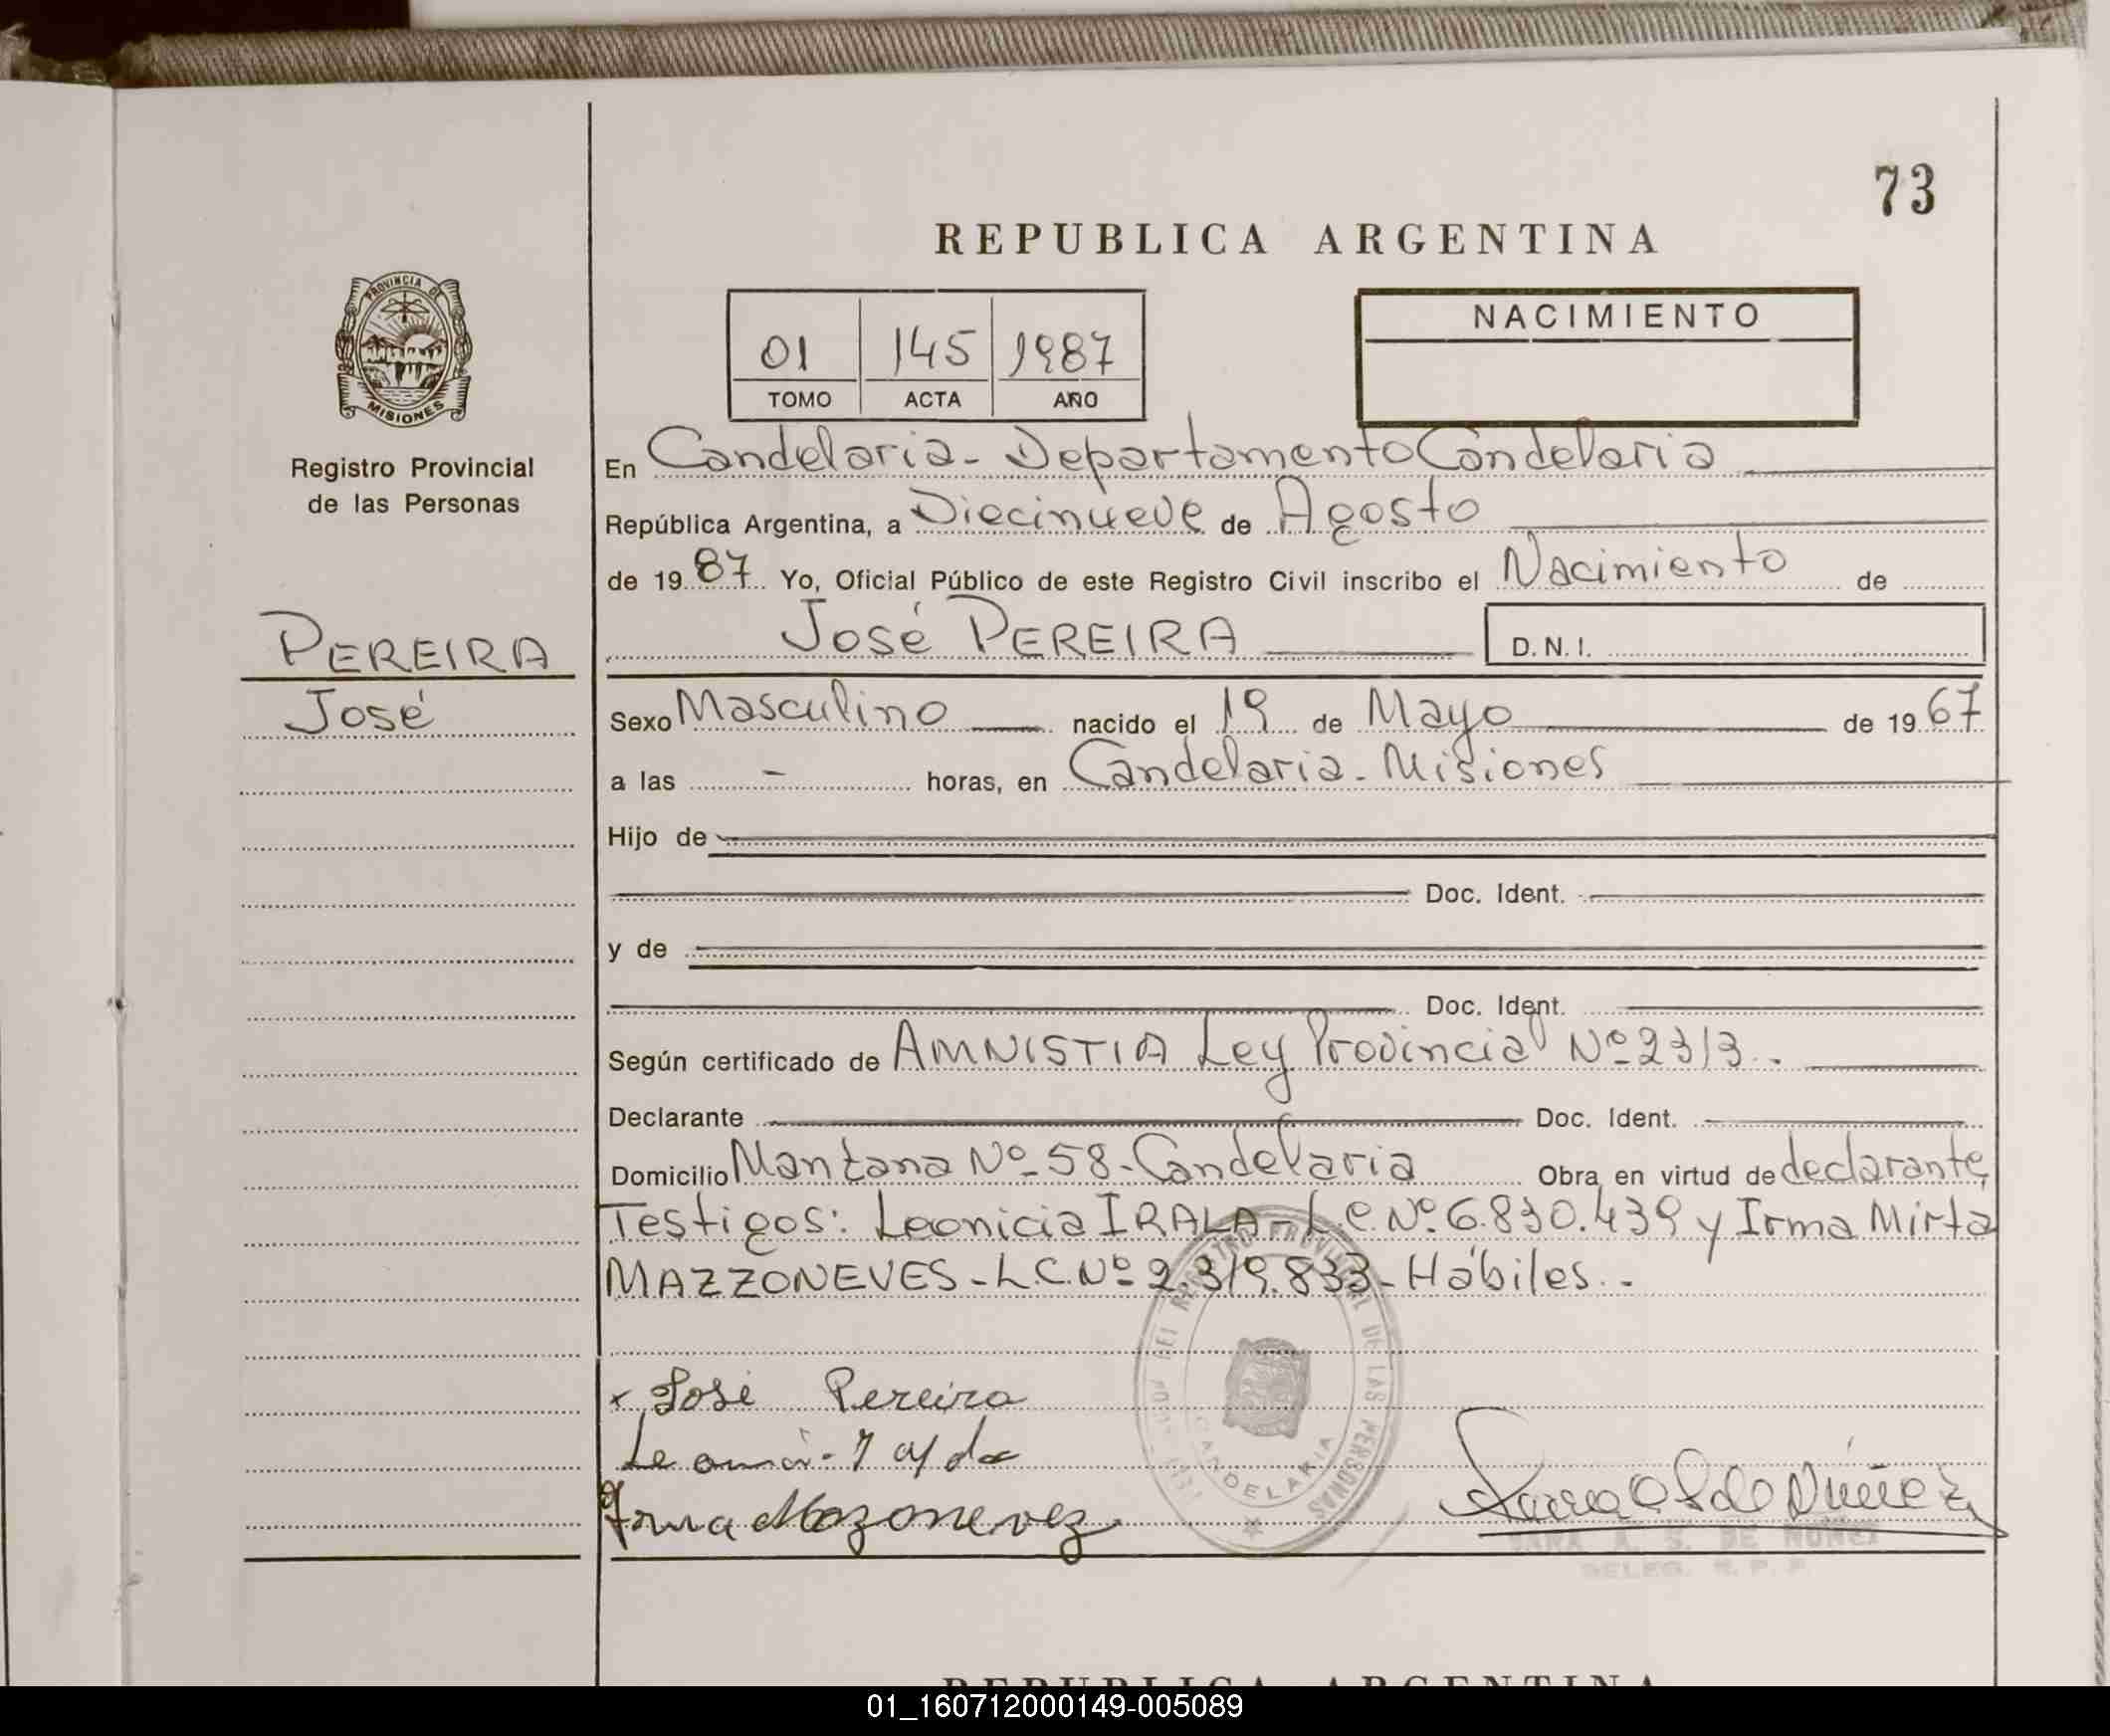 73
REPUBLICA ARGENTINA
PROVINCIA DE
MISIONES
Registro Provincial
de las Personas
01 145 1987
TOMO ACTA AÑO
NACIMIENTO
En Candelaria - Departamento Candelaria
República Argentina, a Diecinueve de Agosto
de 19 87 Yo, Oficial Público de este Registro Civil inscribo el Nacimiento de
PEREIRA
José
José PEREIRA D.N.I.
Sexo Masculino nacido el 19 de Mayo de 19 67
a las - horas, en Candelaria - Misiones
Hijo de
Doc. Ident.
y de
Doc. Ident.
Según certificado de AMNISTIA Ley Provincial Nº 2313.
Declarante Doc. Ident.
Domicilio Manzana Nº 58 - Candelaria Obra en virtud de declarante,
Testigos: Leonicia IRALA - L.C. Nº 6.830.439 y Irma Mirta
MAZZONEVES - L.C. Nº 2.319.833 - Hábiles. -
x José Pereira
Irma Mozonevez
Nuñez
REGISTRO PROVINCIAL DE LAS PERSONAS
CANDELARIA
SARA A. S. DE NUÑEZ
DELEG. R. P. P.
REPUBLICA ARGENTINA
01_160712000149-005089